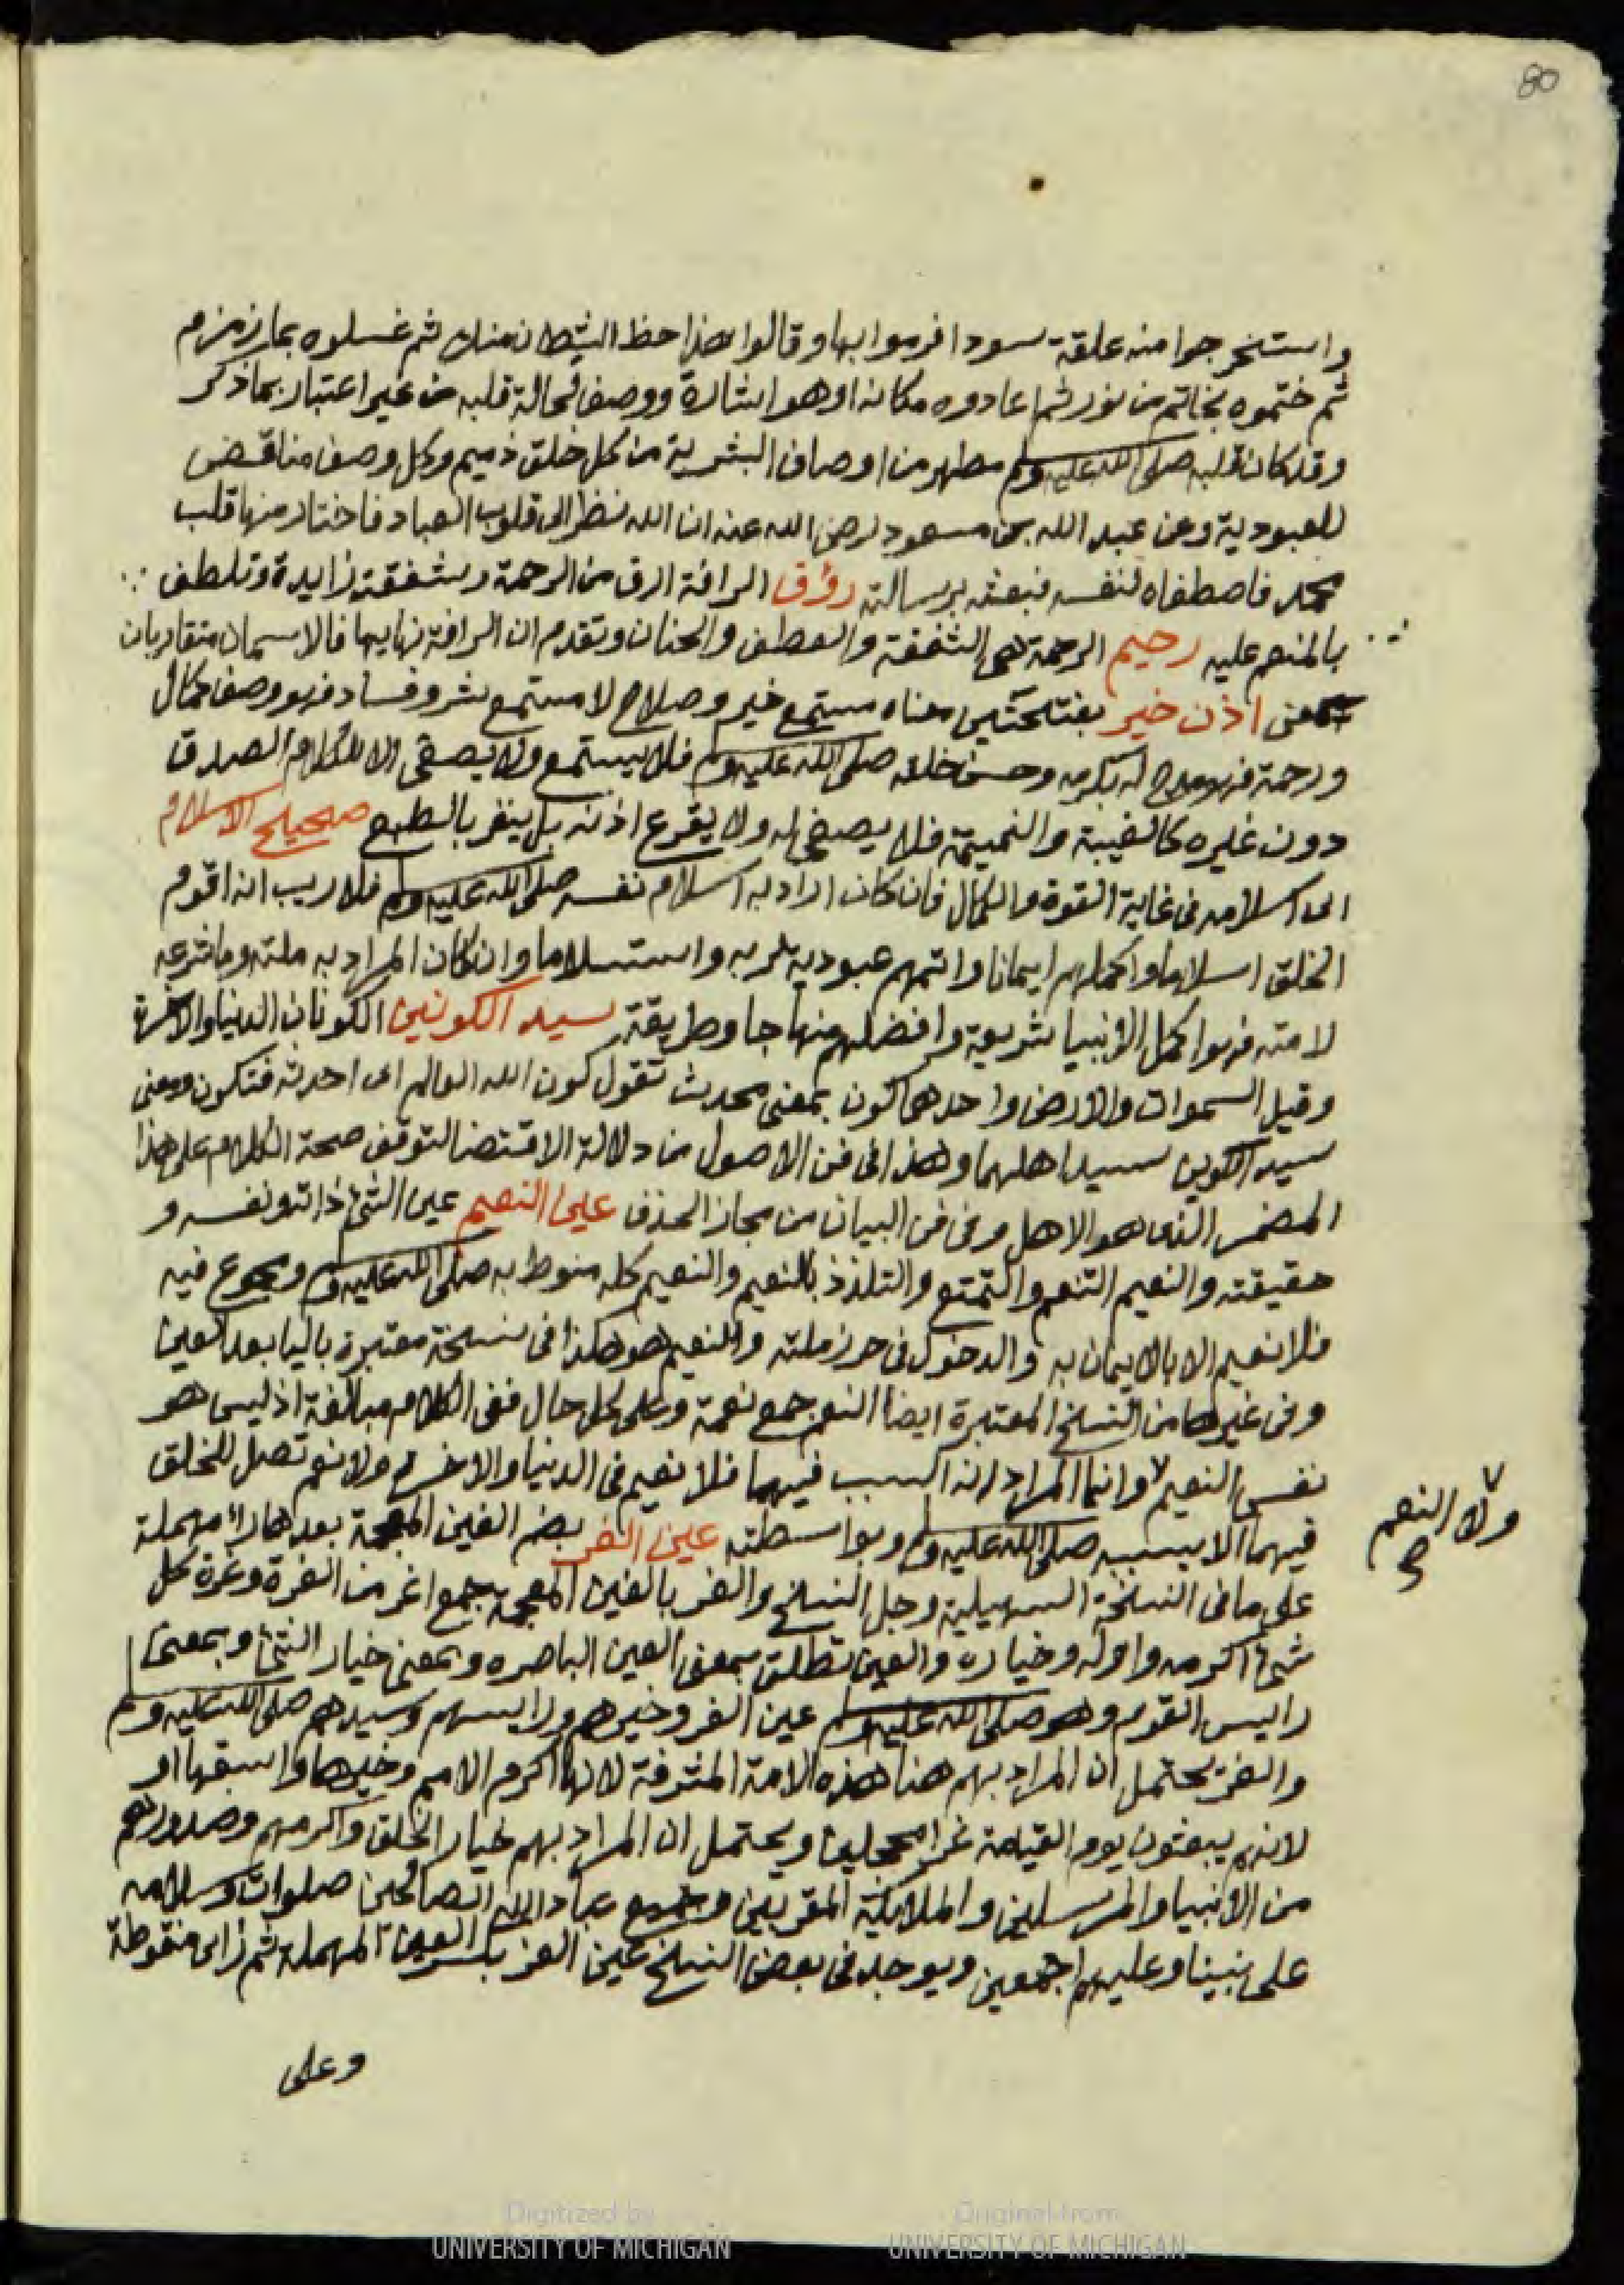 80
واستخرجوا منه علقة سودا فرموا بها وقالوا هذا حظ الشيطان منك ثم غسلوه بماء زمزم
ثم ختموه بخاتم من نور ثم اعادوه مكانه او هو اشارة ووصف لحالة قلبه من غير اعتبار بما ذكر
وقد كان قلبه صلى الله عليه وم مطهر من اوصاف البشرية من كل خلق ذميم وكل وصف مناقض
للعبودية وعن عبد الله بن مسعود رضى الله عنه ان الله نظر الى قلوب العباد فاختار منها قلب
محمد فاصطفاه لنفسه فبعثه برسالته رؤف الرافة ارق من الرحمة وشفقة زايدة وتلطف
بالمنعم عليه رحيم الرحمة هى الشفقة والعطف والحنان وتقدم ان الرافة نهايها فالاسمان متقاربان
معنى اذن خير بفتحتين معناه مستمع خير وصلاح لا مستمع شر وفساد فهو وصف كمال
ورحمة فهو مدح له بكرمه وحسن خلقه صلى الله عليه وم فلا يستمع ولا يصغى الا للكلام الصدق
دون غيره كالغيبة والنميمة فلا يصغى له ولا يقرع اذنه بل ينفر بالطبع صحيح الاسلام
اى اسلامه فى غاية القوة والكمال فان كان اراد به اسلام نفسه صلى الله عليه وم فلا ريب انه اقوم
الخلق اسلاما واكملهم ايمانا واتمهم عبودية لربه واستسلاما وان كان المراد به ملته وما شرعه
لامته فهو اكمل الانبيا شريعة وافضلهم منهاجا وطريقة سيد الكونين الكونان الدنيا والاخرة
وقيل السموات والارض واحدهما كون بمعنى محدث تقول كون الله العالم اى احدثه فتكون ومعنى
سيد الكوين سيد اهلهما وهذا فى فن الاصول من دلالة الاقتضا لتوقف صحة الكلام على هذا
المضمر الذى هو الاهل وفى فن البيان من مجاز الحذف عين النعيم عين الشئ ذاته ونفسه و
حقيقته والنعيم التنعم والتمتع والتلذذ بالنعيم والنعيم كله منوط به صلى الله عليه وم ومجموع فيه
فلا نعيم الا بالايمان به والدخول فى حرز ملته والنعيم هو هكذا فى نسخة معتبرة باليا بعد العين
وفى غيرها من النسخ المعتبرة ايضا النعم جمع نعمة وعلى كل حال ففى الكلام مبالغة اذ ليس هو
نفس النعيم ٧ وانما المراد انه السبب فيهما فلا نعيم فى الدنيا والاخرة ولا نعم تصل للخلق
٧ ولا النعم صح
فيهما الا بسببه صلى الله عليه وم وبواسطته عين الغر بضم الغين المعجمة بعدها راء مهملة
على ما فى النسخة السهيلية وجل النسخ والغر بالغين المعجمة جمع اغر من الغرة وغرة كل
شئ اكرمه واوله وخياره والعين تطلق بمعنى العين الباصره وبمعنى خيار الشئ وبمعنى
رايس القوم وهو صلى الله عليه وم عين الغر وخيرهم ورايسهم وسيدهم صلى الله عليه وم
والغر يحتمل ان المراد بهم هنا هذه الامة المشرفة لانها اكرم الامم وخيرها واسبقها او
لانهم يبعثون يوم القيامة غرا محجلين ويحتمل ان المراد بهم خيار الخلق واكرمهم وصدورهم
من الانبيا والمرسلين والملايكة المقربين وجميع عباد الله الصالحين صلوات وسلامه
على نبينا وعليهم اجمعين ويوجد فى بعض النسخ عين العز بكسر العين المهملة ثم زاى منقوطة
وعلى
Digitized by UNIVERSITY OF MICHIGAN
Original from UNIVERSITY OF MICHIGAN